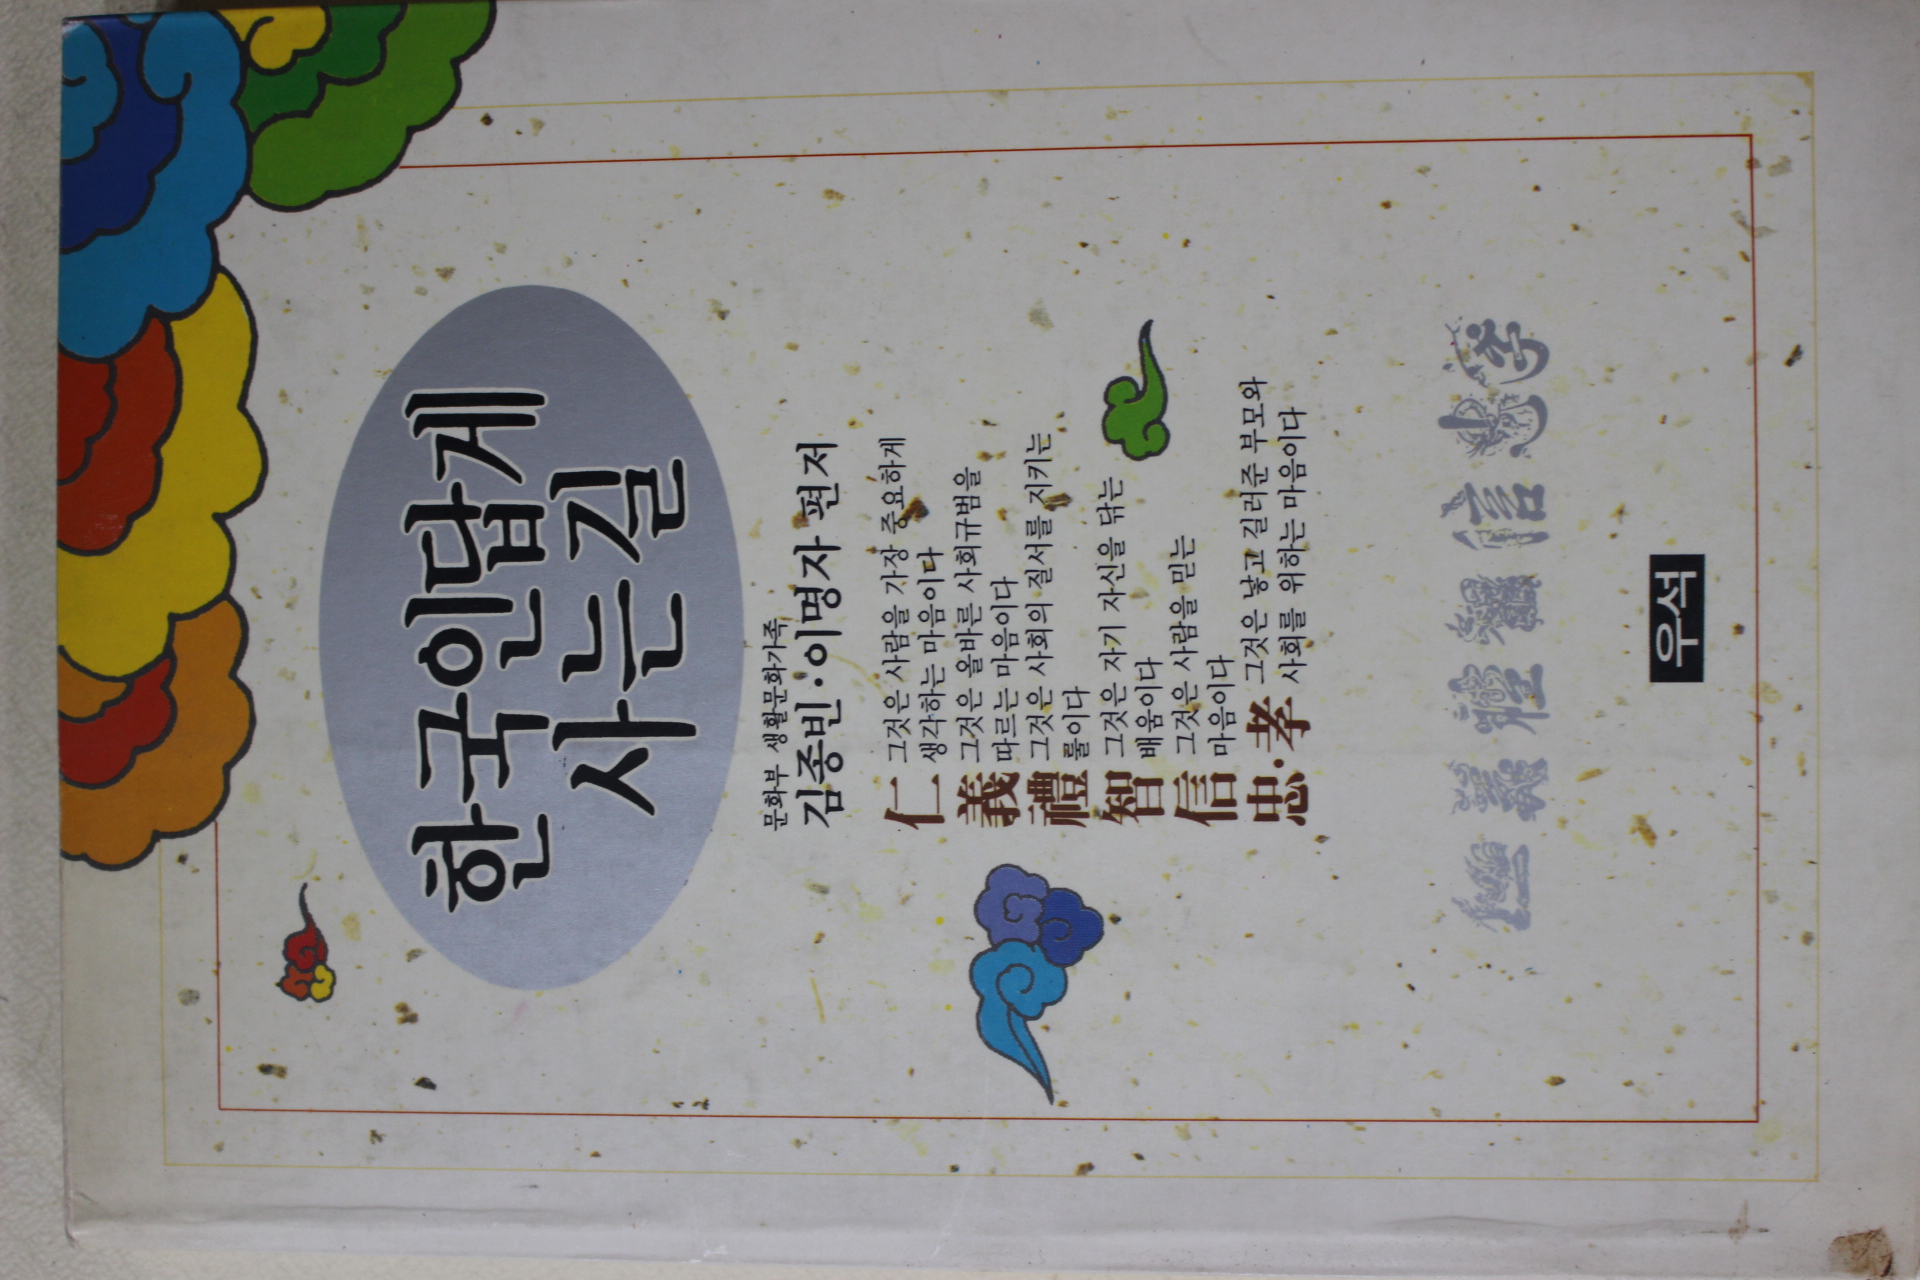 한국인답게
사는길
문화부 생활문화가족
김종빈·이명자 편저
仁 그것은 사람을 가장 중요하게
생각하는 마음이다
義 그것은 올바른 사회규범을
따르는 마음이다
禮 그것은 사회의 질서를 지키는
룰이다
智 그것은 자기 자신을 닦는
배움이다
信 그것은 사람을 믿는
마음이다
忠·孝 그것은 낳고 길러준 부모와
사회를 위하는 마음이다
우석